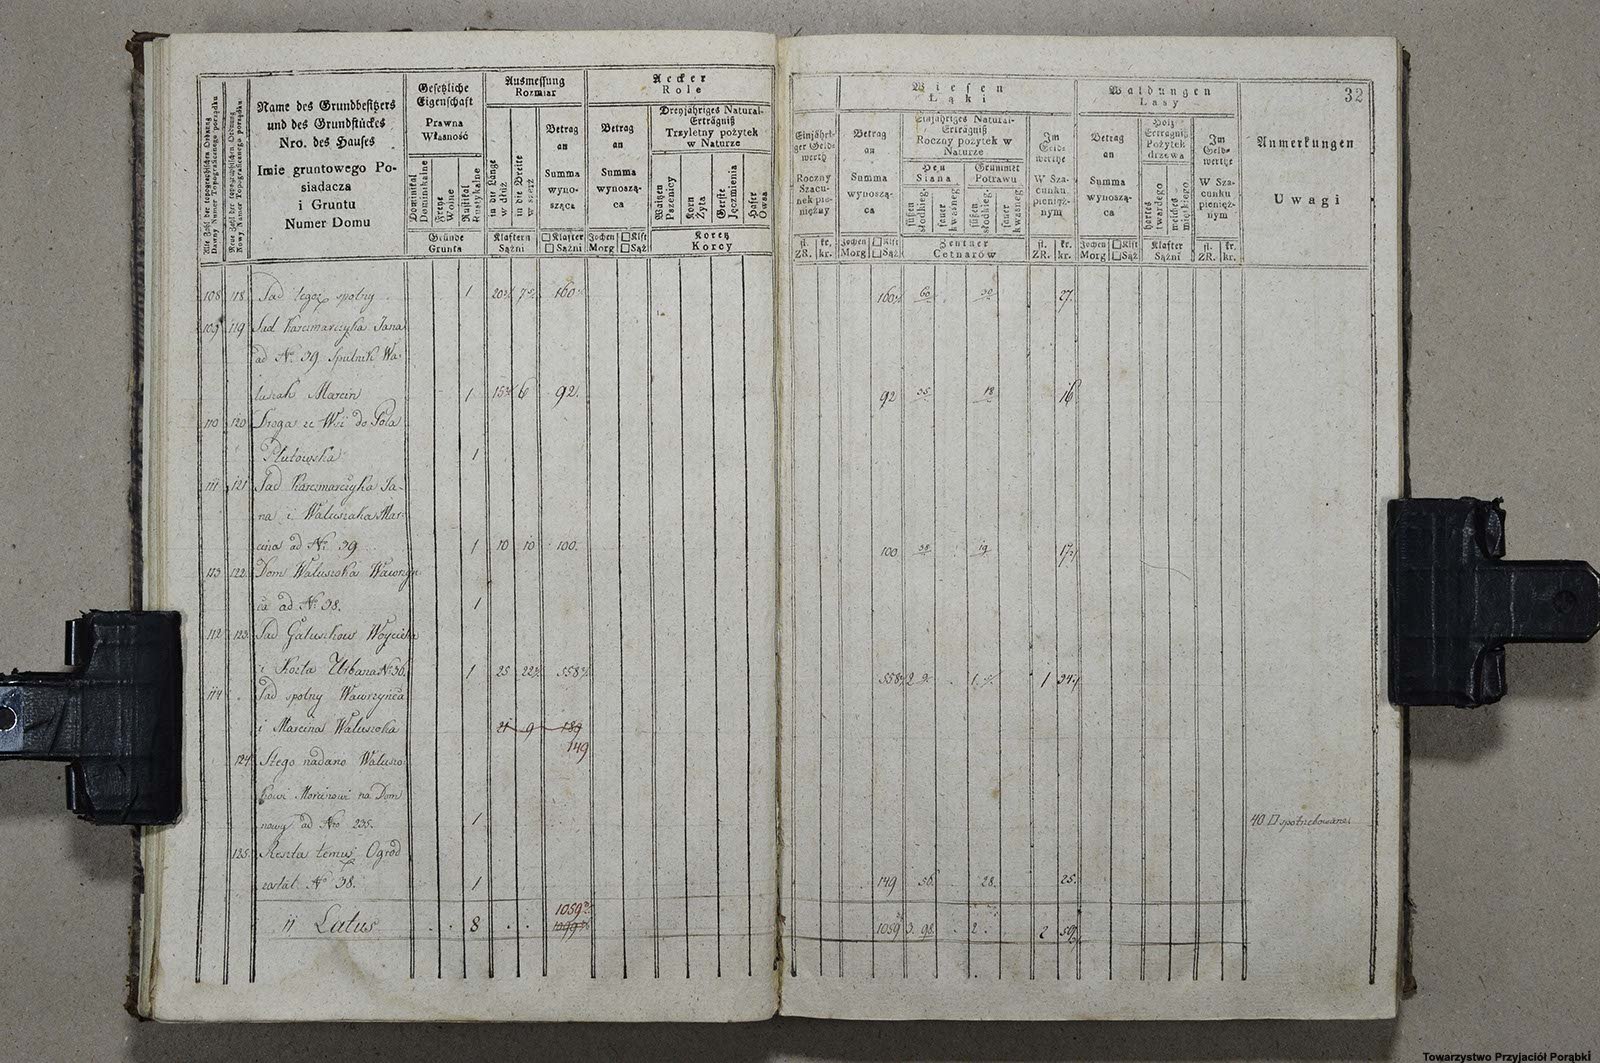 Alte Zahl der topographischen Ordnung
Dawny Numer Topograficznego porządku
Neue Zahl der topographischen Ordnung
Nowy Numer Topograficznego porządku
Name des Grundbesitzers
und des Grundstückes
Nro. des Hauses
Imie gruntowego Po-
siadacza
i Gruntu
Numer Domu
Gesetzliche
Eigenschaft
Prawna
Własność
Dominikal
Dominikalne
Freye
Wolne
Rustikal
Rustykalne
Gründe
Grunta
Ausmessung
Rozmiar
in die Länge
w dłuż
in die Breite
w szerz
Betrag
an
Summa
wyno-
sząca
Klaftern
Sążni
□ Klafter
□ Sążni
Aecker
Role
Betrag
an
Summa
wynoszą-
ca
Jochen □ Klft
Morg □ Sąż
Dreyjähriges Natural-
Erträgniß
Trzyletny pożytek
w Naturze
Waitzen
Pszenicy
Korn
Żyta
Gerste
Jęczmienia
Hafer
Owsa
Koretz
Korcy
Einjähri-
ger Geld-
werth
Roczny
Szacu-
nek pie-
niężny
fl. kr.
ZR. kr.
Wiesen
Łąki
Betrag
an
Summa
wynoszą-
ca
Jochen □ Klft
Morg □ Sąż
Einjähriges Natural-
Erträgniß
Roczny pożytek w
Naturze
Heu
Siana
Grummet
Potrawu
süßen
słodkieg.
sauer
kwaśneg.
süßen
słodkieg.
sauer
kwaśneg.
Zentner
Cetnarów
Im
Geld-
werthe
W Sza-
cunku
pienięż-
nym
fl. kr.
ZR. kr.
Waldungen
Lasy
Betrag
an
Summa
wynoszą-
ca
Jochen □ Klft
Morg □ Sąż
Holz-
Erträgniß
Pożytek
drzewa
hartes
twardego
weiches
miękkiego
Klafter
Sążni
Im
Geld-
werthe
W Sza-
cunku
pienięż-
nym
fl. kr.
ZR. kr.
32
Anmerkungen
Uwagi
108 118 Sad tegoż spolny 1 160 160 60 30 27
109 119 Sad Karcmarczyka Jana
ad No. 39 Spulnik Wa-
luszak Marcin 1 6 92. 92 35 18 16
110 120 Droga ze Wsi do Pola
Plutowska 1
111 121 Sad Karcmarczyka Ja-
na i Waluszaka Mar-
cina ad No. 39 1 10 10 100. 100 38 19 17
113 122 Dom Waluszoka Wawrzyń
ca ad No. 38. 1
112 123 Sad Gałuszkow Woyciecha
i Kozła Urbana No 36. 1 25 22 558 558 2 1 1 34
114 Sad spolny Wawrzyńca
i Marcina Waluszoka 21 9 189
149
124 Stego nadano Waluszo-
kowi Morcinowi na Dom
nowy ad Nro 235. 1 40 □ spotrzebowane
125 Reszta temuż Ogrod
został No 38. 1 149 56. 28. 25.
1059
11 Latus 8 1099 1059 3. 98. 2 2 59
Towarzystwo Przyjaciół Porąbki